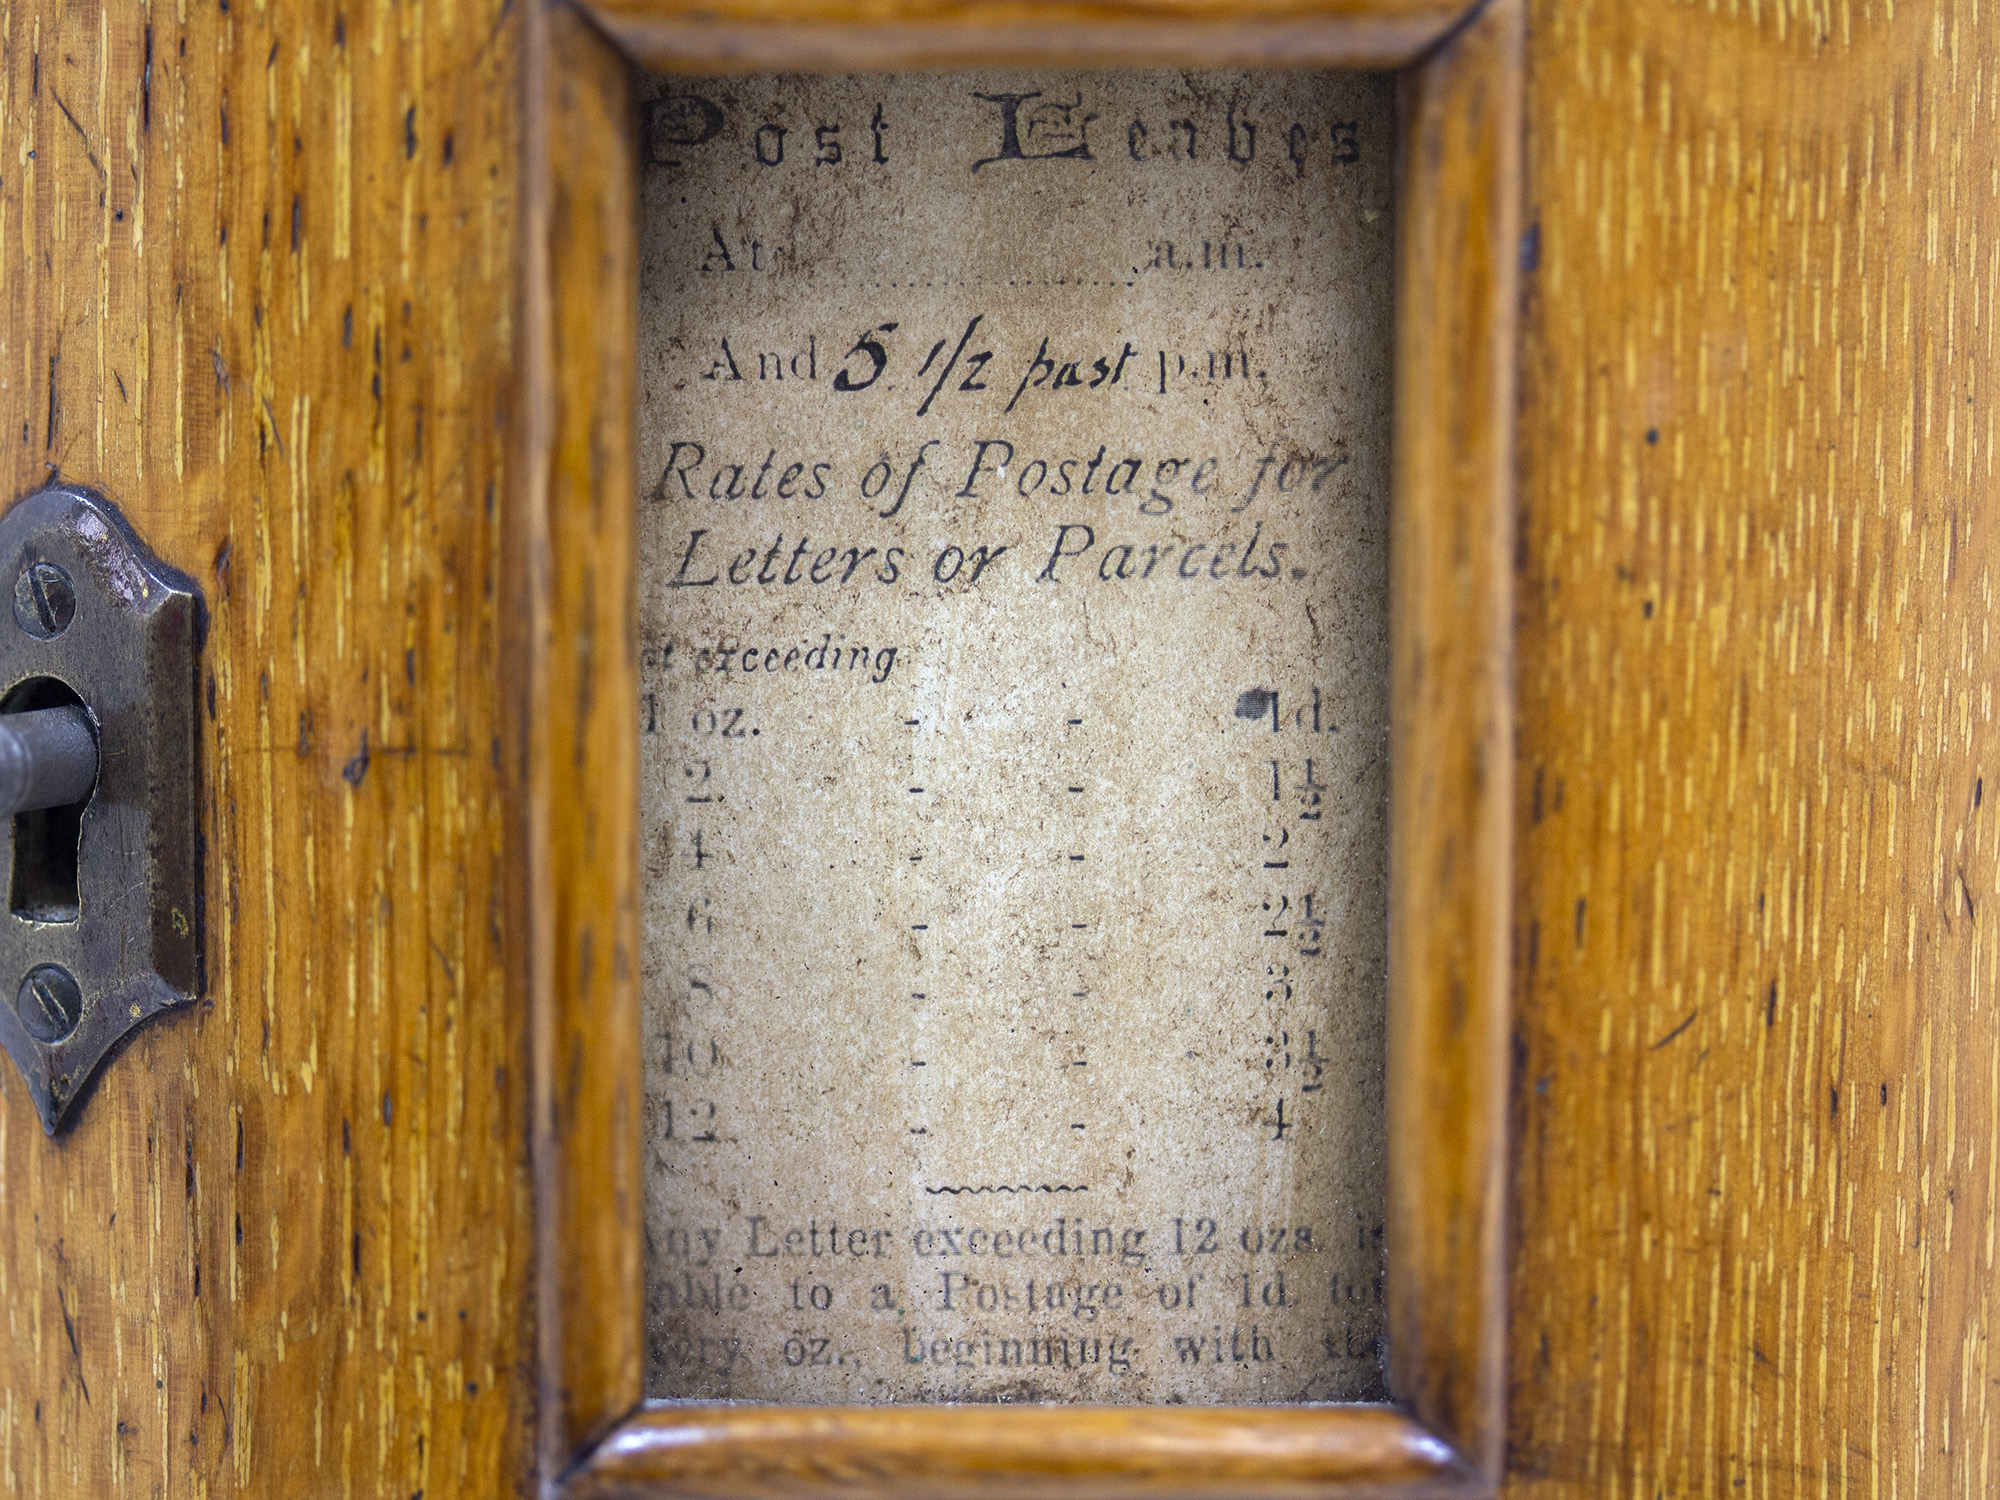 Post Leaves
At ........................ a.m.
And 5 1/2 past p.m.
Rates of Postage for
Letters or Parcels.
exceeding
1 oz. - - 1d.
2 - - 1½
4 - - 2
6 - - 2½
8 - - 3
10 - - 3½
12 - - 4
Any Letter exceeding 12 ozs. is
able to a Postage of 1d. for
very oz., beginning with the